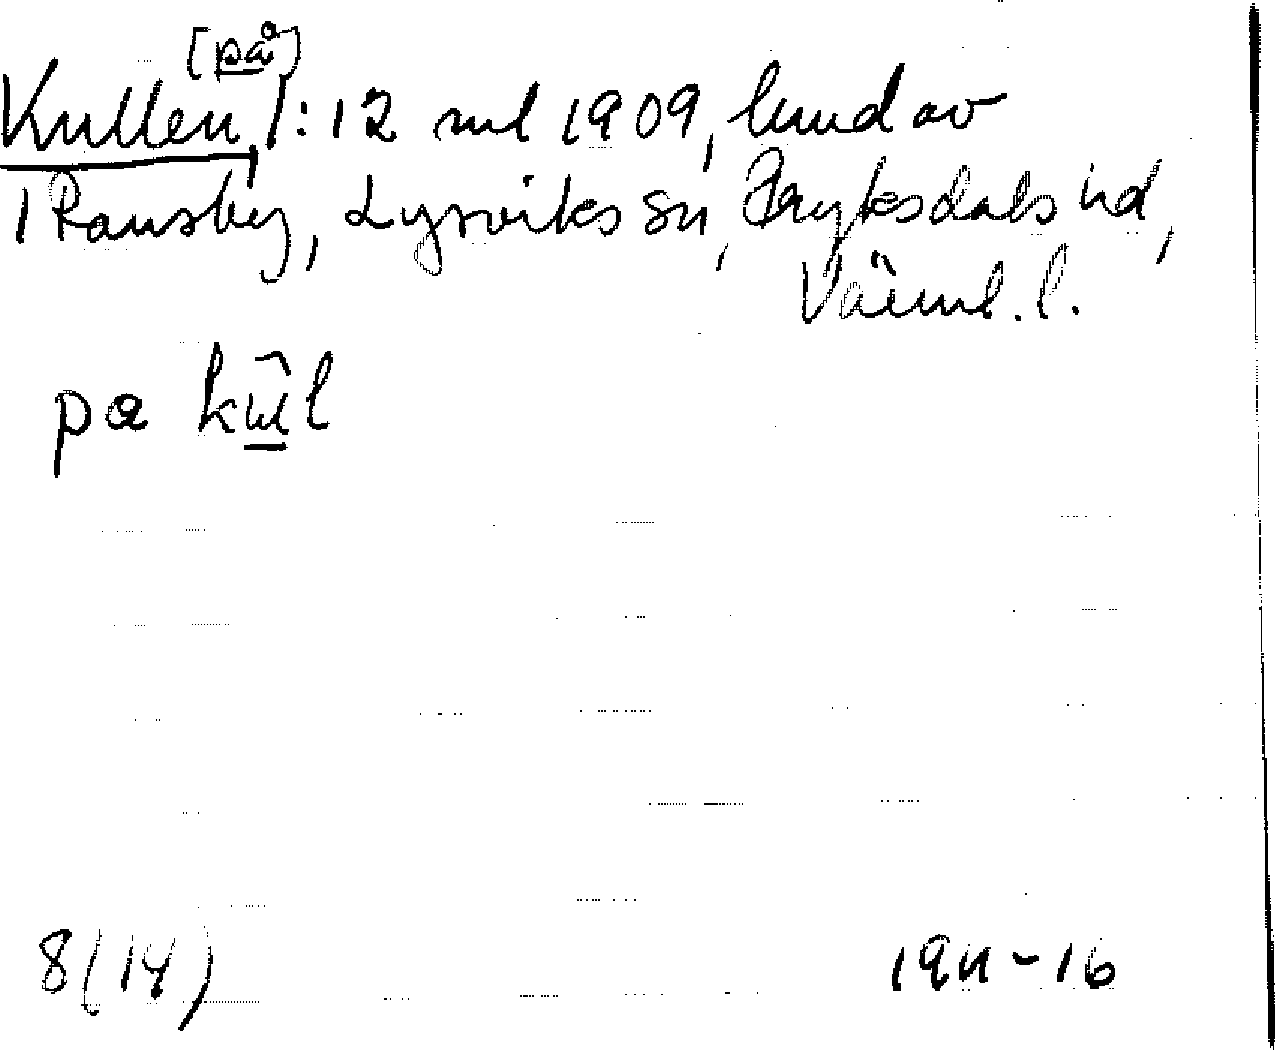 [på]
Kullen, 1:12 mtl 1909, lund av
1 Ransby, Lysviks sn, Fryksdals hd,
Värml. l.
pa kɯ̂l
8(14) 1911-16